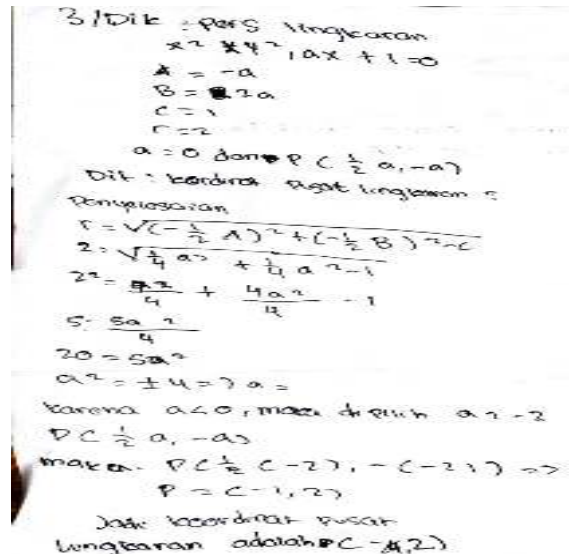 3 / Dik : pers lingkaran
x² + y², ax + 1 = 0
A = -a
B = 2a
C = 1
r = 2
a = 0 dan P ( 1/2 a, -a)
Dit : kordinat pusat lingkaran ?
Penyelesaian
r = √(-1/2 A)² + (-1/2 B)² - C
2 = √1/4 a² + 1/4 a² - 1
2² = a²/4 + 4a²/4 - 1
5 = 5a²/4
20 = 5a²
a² = ± 4 => a =
karena a < 0, maka dipilih a = -2
P ( 1/2 a, -a)
maka P ( 1/2 (-2), -(-2)) =>
P = (-1, 2)
Jadi koordinat pusat
lingkaran adalah P (- , 2)